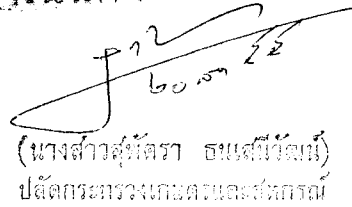 ๒๐ ธค ๔๕
(นางสาวสุพัตรา ธนเสนีวัฒน์)
ปลัดกระทรวงเกษตรและสหกรณ์